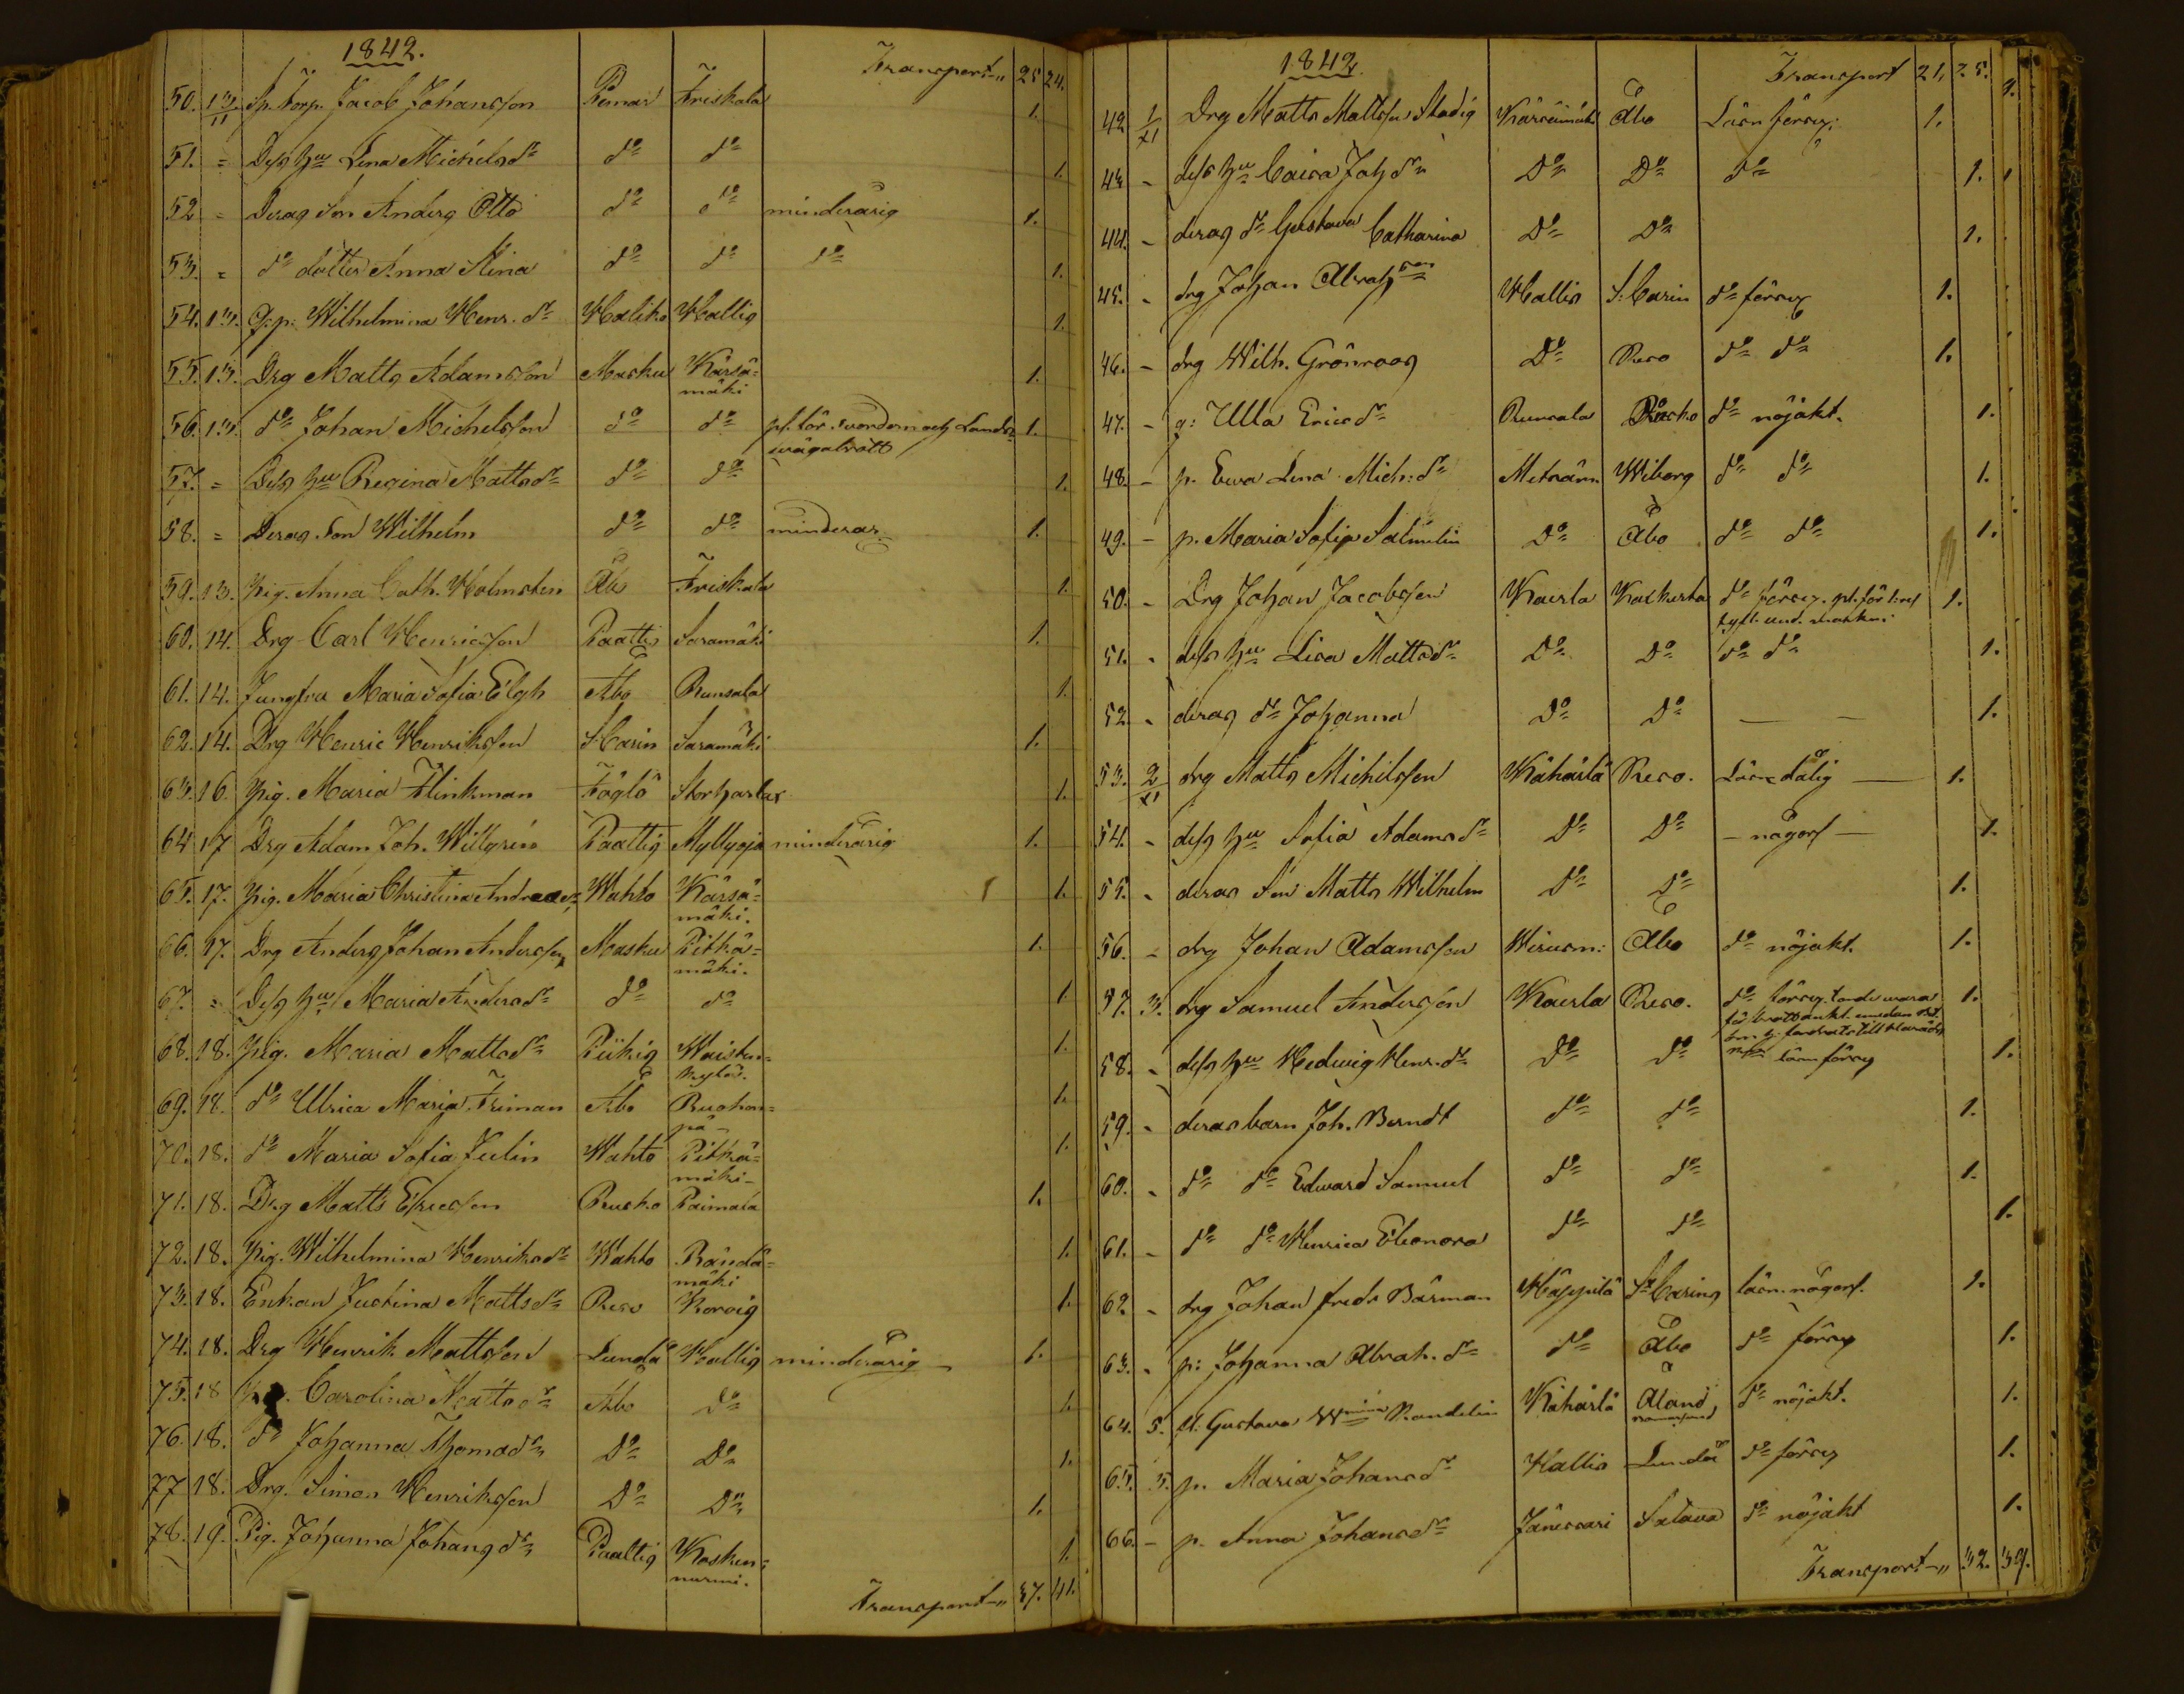 1842.
Transport " 25 24.
50. 13/11 Sp. Torp. Jacob Johansson Pemar Friskala 1.
51. = Dess hu Lena Michelsdr do do 1.
52 = Deras Son Anders Otto do do minderårig 1.
53. = do dotter Anna Stina do do do 1.
54. 13. Wilhelmina Henr. dr Haliko Hallis 1.
55. 13. Drg Matts Adamsson Masku Kärsä=
mäki 1.
56. 13. do Johan Michelsson do do 1.
57. = Dess hu Regina Mattsdr do do 1.
58. = Deras Son Wilhelm do do minderår. 1.
59. 13. Pig. Anna Cath. Holmsten Åbo Friskala 1.
60. 14. Drg Carl Henricsson Paattis Saramäki 1.
61. 14. Jungfru Maria Sofia Elgh Åbo Runsala 1.
62. 14. Drg Henric Henriksson S. Karin Saramäki 1.
63. 16. Pig. Maria Flinkman Föglö Storharlax 1.
64 17 Drg Adam Joh. Willgrén Paattis Myllyoja minderårig 1.
65. 17. Pig. Maria Christina Andreaedr Wahto Kärsä=
mäki. 1.
66. 17. Drg Anders Johan Andersson Masku Pitkä=
mäki. 1.
67. = Dess hu Maria Andersdr do do 1.
68. 18. Pig. Maria Mattsdr Piikis Waisten=
kylä. 1.
69. 18. do Ulrica Maria Friman Åbo Ruohon=
pä 1.
70. 18. do Maria Sofia Julin Wahto Pitkä=
mäki 1.
71. 18. Drg Matts Ericsson Rusko Paimala 1.
72. 18. Pig. Wilhelmina Henriksdr Wahto Rändä=
mäki 1.
73. 18. Enkan Justina Mattsdr Reso Korois 1.
74. 18. Drg Henrik Mattsson Lundå Hallis minderårig 1.
75. 18 Pig. Carolina Mattsdr Åbo Do 1.
76. 18. do Johanna Thomadr Do Do 1.
77 18. Drg. Simon Henriksson Do Do 1.
78. 19. Pig. Johanna Johansdr Paattis Kosken=
nurmi. 1.
Transport " 37. 41.
1842
Transport 21. 25.
42 1/11 Drg Matts Mattsson Stadig Kärsämäki Åbo Läsn försv: 1.
43 - dess hu Caisa Joh dr Do Do do 1.
44. - deras dr Gustava Catharina Do Do 1.
45. - drg Johan Abrahsson Hallis S: Carin do försv 1.
46. - drg Wilh. Grönroos Do Reso do do 1.
47. - g: Ulla Ericsdr Runsala Rusko do nöjakt. 1.
48. - p. Ewa Lena Mich: dr Metsärn Wiborg do do 1.
49. - p. Maria Sofia Salmelin Do Åbo do do 1.
50. - Drg Johan Jacobsson Kaerla Kakskerta do försv. 1.
51. - dess hu Lisa Mattsdr Do Do do do 1.
52. - deras dr Johanna Do Do — — 1.
53. 2/11 drg Matts Michelsson Kähärlä Reso. Läsn dålig — 1.
54. - dess hu Sofia Adamsdr Do Do — någorl — 1.
55. - deras Son Matts Wilhelm Do Do 1.
56. - drg Johan Adamsson Wirusm: Åbo do nöjakt. 1.
57. 3. drg Samuel Andersson Kaerla Reso. do försv. 1.
58. - dess hu Hedwig Henr. dr Do Do läsn försv 1.
59. - deras barn Joh. Berndt do do 1.
60. - do do Edward Samuel do do 1.
61. - do do Henrica Eleonora do do 1.
62 - drg Johan Fredr Bärman Häppilä St Carins läsn. någorl. 1.
63. - p: Johanna Abrah. dr do Åbo do försv 1.
64. 5. Gustava Wmina Randelin Kähärlä Åland, do nöjakt. 1.
65. 5. p. Maria Johansdr Hallis Lundå do försv 1.
66. - p. Anna Johansdr Jänessari Satava do nöjakt 1.
Transport " 32. 39.